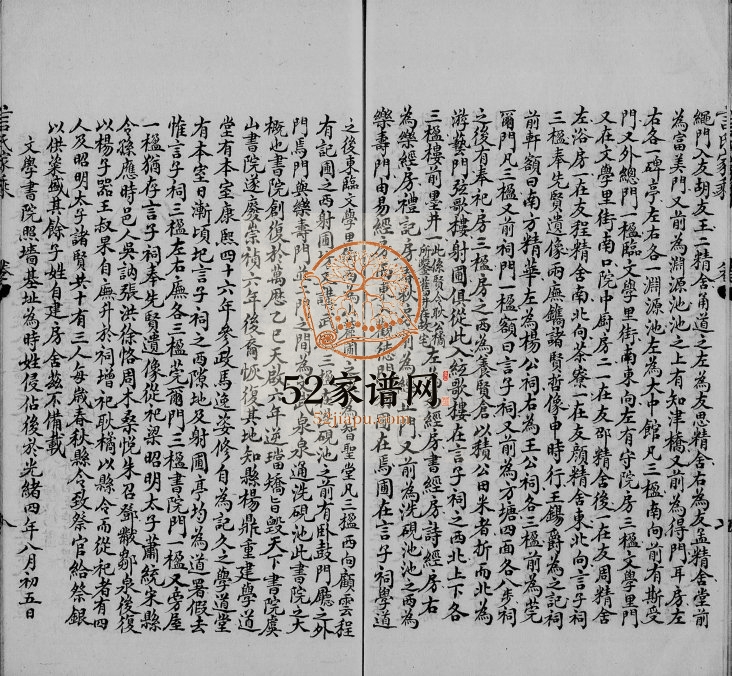 繩門入友胡友王二精舍甬道之左為友思精舍右為友孟精舍堂前
為富美門又前為淵源池池之上有知津橋又前為得門耳房左
右各一碑亭左右各一淵源池左為大中館凡三楹南向前有斯受
門又外總門一楹臨文學里街南東向左有守院房三楹文學里門
又在文學里街南口院中厨房二一在友邵精舍後一在友周精舍
左浴房一在友程精舍南北向茶寮一在友顏精舍東北向言子祠
三楹奉先賢遺像兩廡鐫諸賢哲像申時行王錫爵為之記祠
前軒額曰南方精華左為楊公祠右為王公祠各三楹前為莞
爾門凡三楹又前祠門一楹額曰言子祠又前為方塘四面各八步祠
之後有奉祀房三楹房之西為養賢倉以積公田米者折而北為
游藝門弦歌樓射圃俱從此入弦歌樓在言子祠之西北上下各
三楹樓前墨井一 左 經房書經房詩經房右
為樂經房禮記房春秋 前為 門又前為洗硯池池之西為
樂壽門由易經房 東入 在馬圃在言子祠學道
之後東臨文學里 聖堂凡三楹西向顧雲程
有記圃之西射圃 三楹 洗硯池之前有卧鼓門廳之外
門焉門與樂壽門並 門之間為 泉泉通洗硯池此書院之大
概也書院創復於萬曆乙巳天啟六年逆璫矯旨毀天下書院虞
山書院遂廢崇禎六年後裔恢復其地知縣楊鼎重建學道
堂有本室康熙四十六年參政馬逸姿修自為記久之學道堂
有本室日漸頃圯言子祠之西隙地及射圃亭均為道署假去
惟言子祠三楹左右廡各三楹莞爾門三楹書院門一楹又旁屋
一楹猶存言子祠奉先賢遺像從祀梁昭明太子蕭統宋縣
令孫應時邑人吳訥張洪徐恪周木桑悅朱召鄧韍鄒泉後復
以楊子器王叔杲自廡升於祠增祀耿橘以縣令而從祀者有四
人及昭明太子諸賢共十有三人每歲春秋縣令致祭官給祭銀
以供粢盛其餘子姓自建房舍茲不備載
文學書院照墻基址為時姓侵佔後於光緒四年八月初五日
52家谱网
52jiapu.com